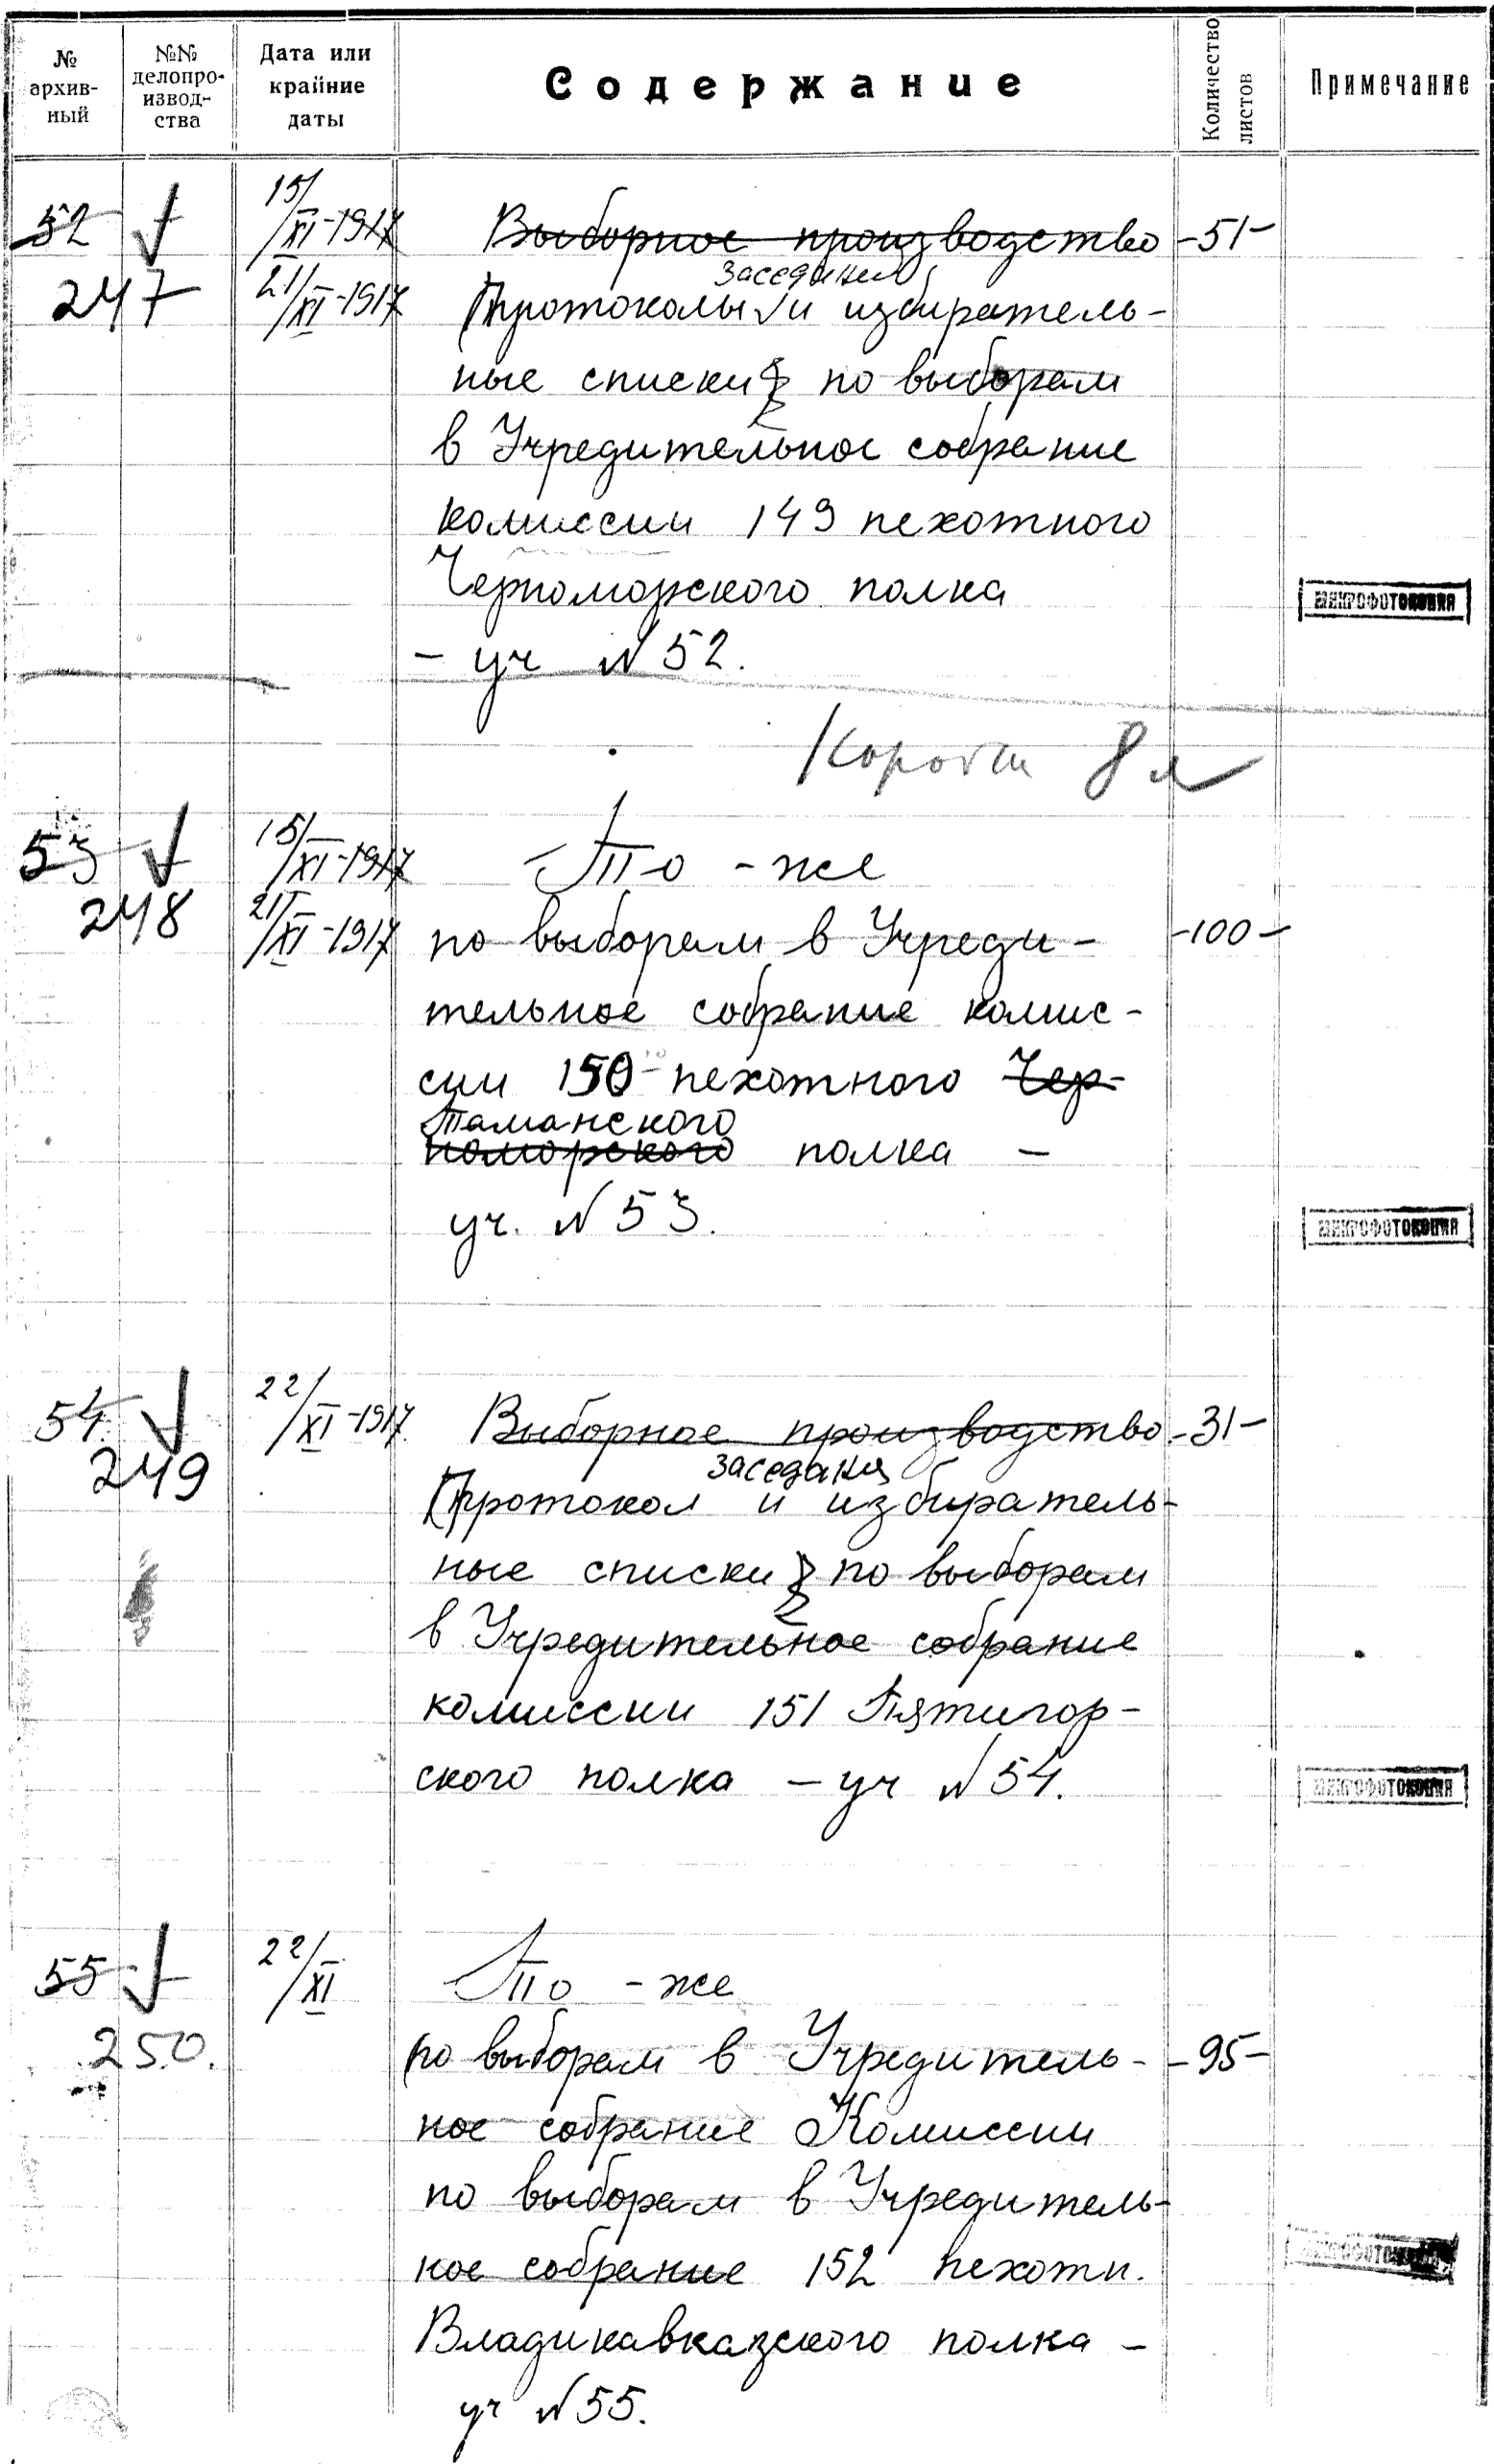 № архив-ный
№№ делопро-извод-ства
Дата или крайние даты
Содержание
Количество листов
Примечание
52
247
15/XI-1917
21/XI-1917
Выборное производство -51-
заседания
Протоколы и избиратель-
ные списки по выборам
в Учредительное собрание
комиссии 149 пехотного
Черноморского полка
МИКРОФОТОКОПИЯ
- уч N 52.
8 л
53
248
15/XI-1917
21/XI-1917
То - же
по выборам в Учреди- -100-
тельное собрание комис-
сии 150 пехотного Чер-
Таманского
номорского полка -
уч. N 53.
МИКРОФОТОКОПИЯ
54.
249
22/XI-1917.
Выборное производство -31-
заседания
Протокол и избиратель-
ные списки по выборам
в Учредительное собрание
комиссии 151 Пятигор-
ского полка - уч N 54.
МИКРОФОТОКОПИЯ
55
250.
22/XI
То - же
по выборам в Учредитель- -95-
ное собрание Комиссии
по выборам в Учредитель-
ное собрание 152 пехотн.
МИКРОФОТОКОПИЯ
Владикавказского полка -
уч N 55.